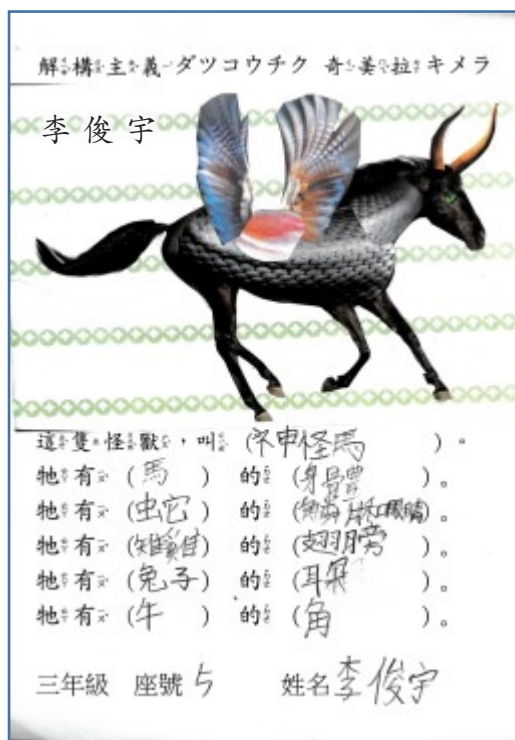 解構主義ダツコウチク 奇美拉キメラ
李俊宇
這隻怪獸,叫(神怪馬)。
牠有(馬)的(身體)。
牠有(蛇)的(鱗片和眼睛)。
牠有(雉雞)的(翅膀)。
牠有(兔子)的(耳朵)。
牠有(牛)的(角)。
三年級 座號5 姓名李俊宇